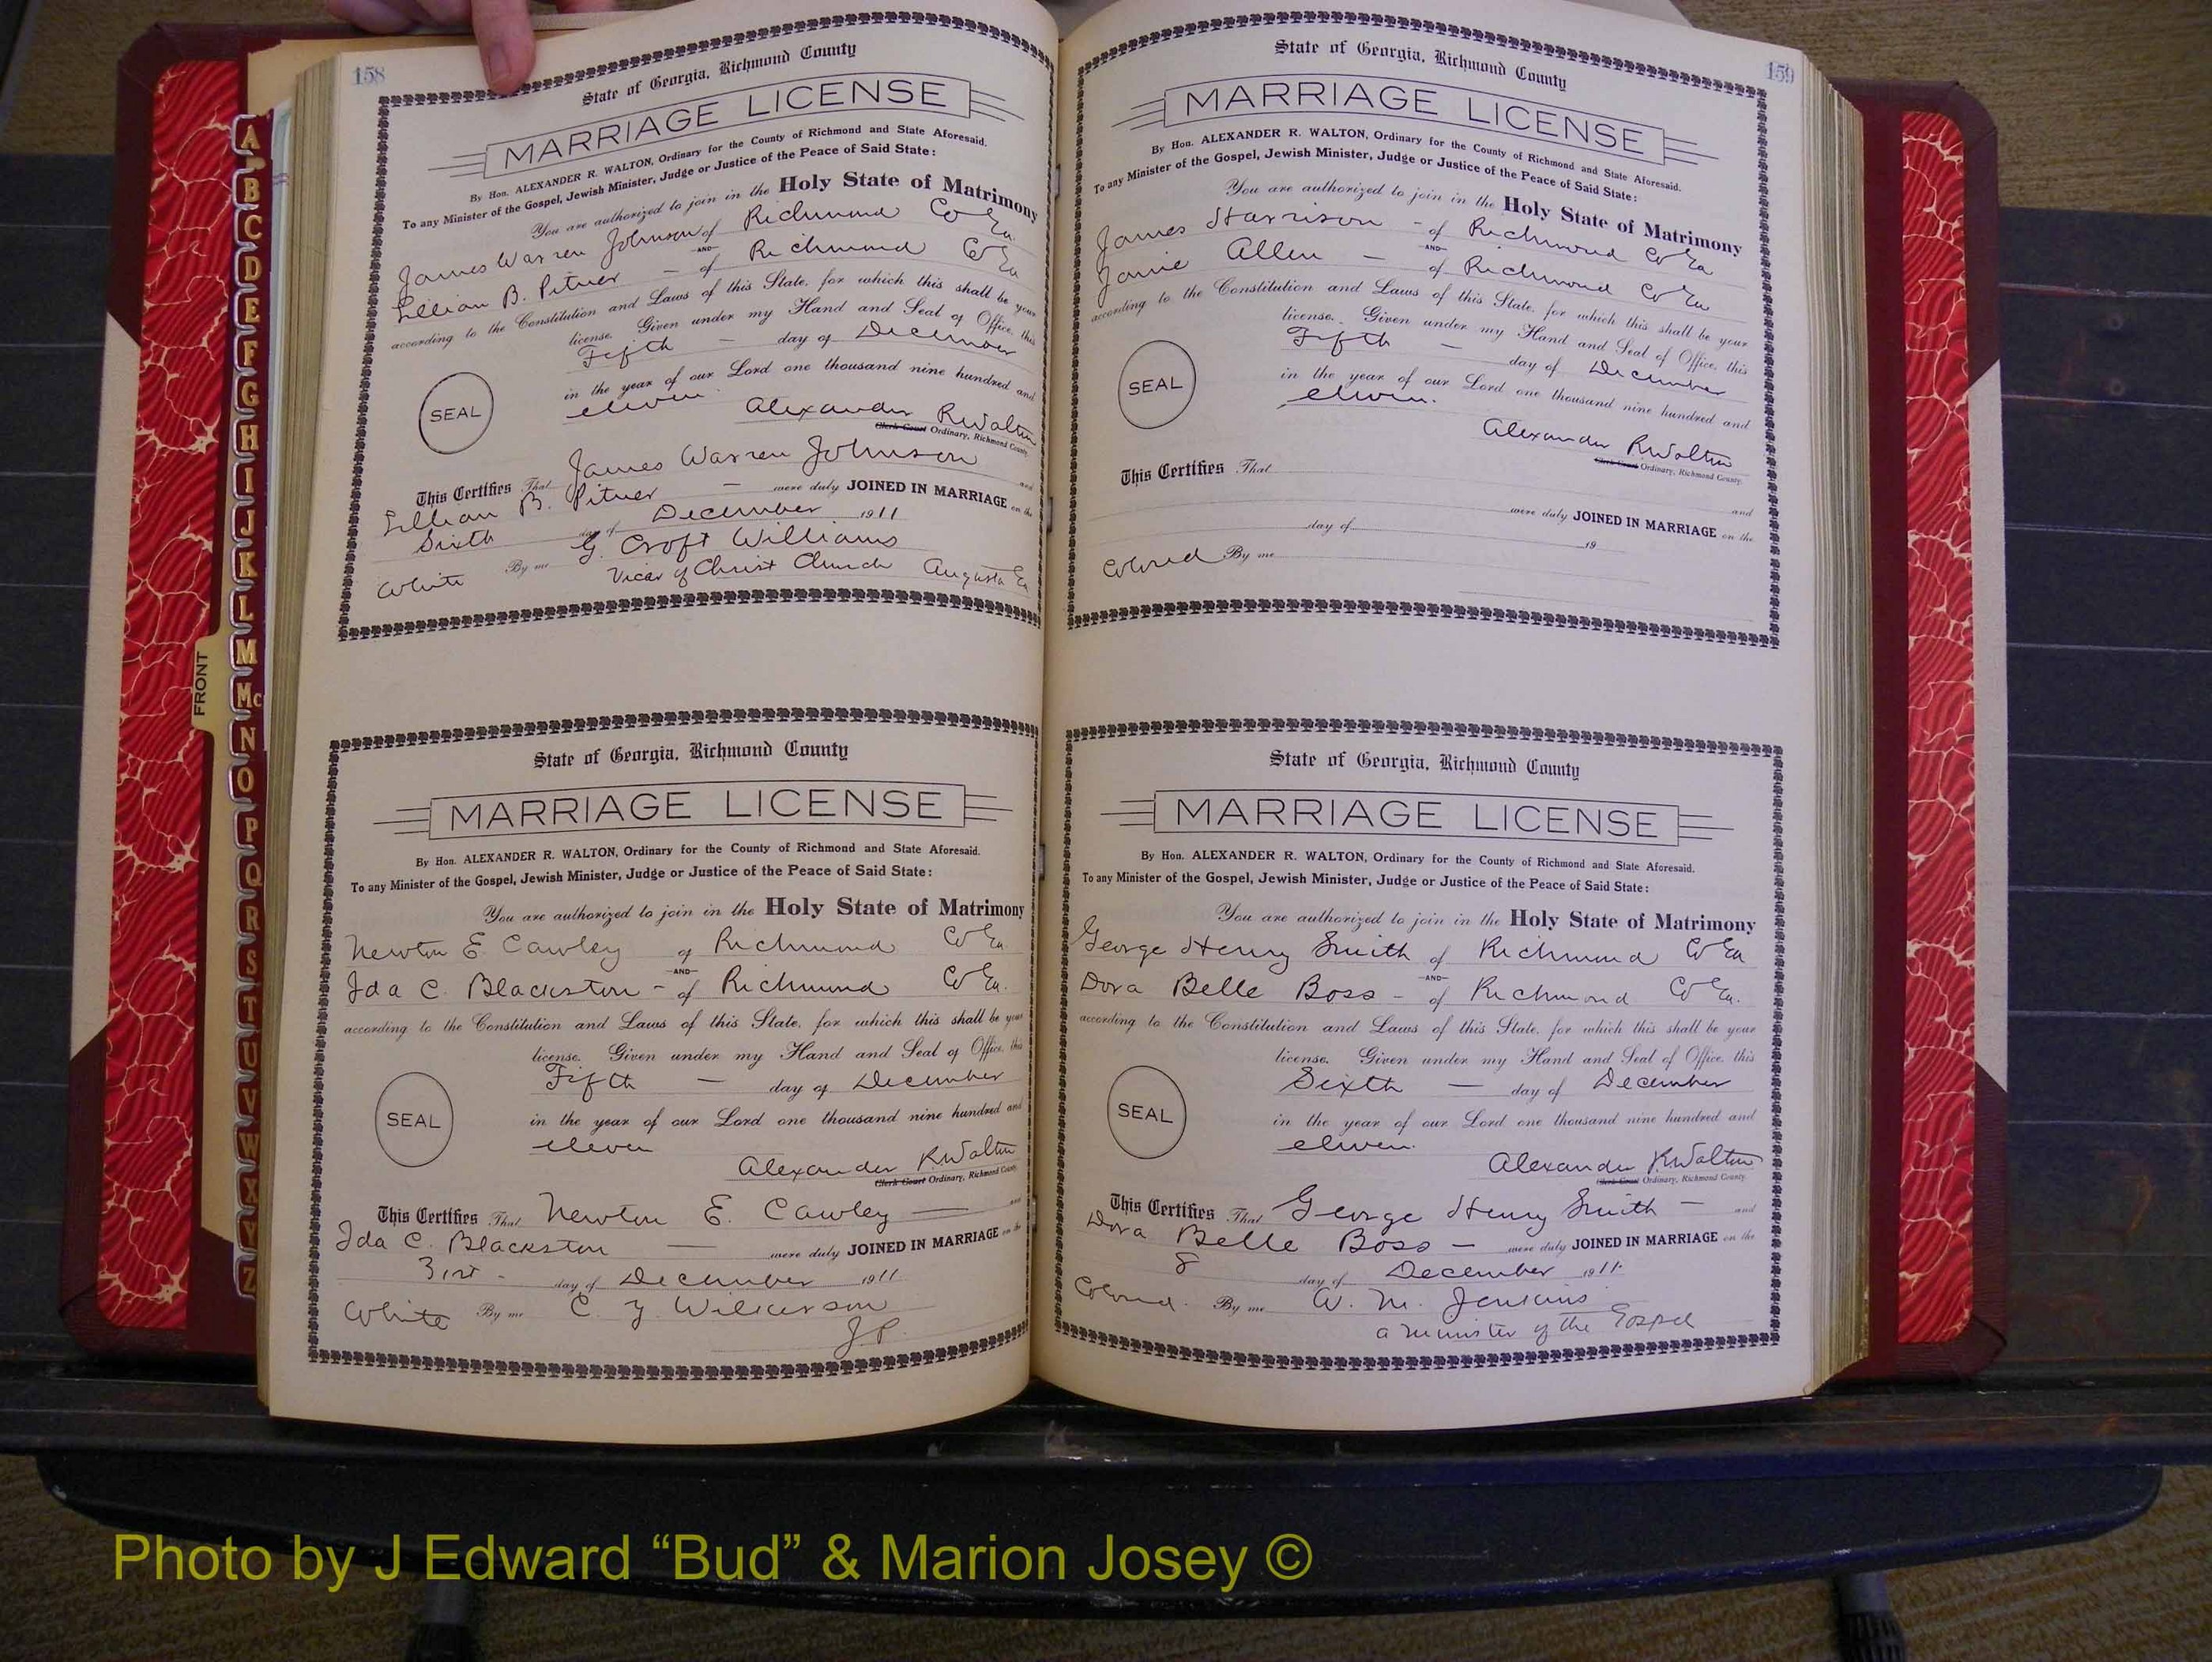 158
State of Georgia, Richmond County
MARRIAGE LICENSE
By Hon. ALEXANDER R. WALTON, Ordinary for the County of Richmond and State Aforesaid.
To any Minister of the Gospel, Jewish Minister, Judge or Justice of the Peace of Said State:
You are authorized to join in the Holy State of Matrimony
James Warren Johnson of Richmond Co Ga.
AND
Lillian B. Pitner - of Richmond Co Ga
according to the Constitution and Laws of this State, for which this shall be your
license. Given under my Hand and Seal of Office, this
Fifth - day of December
in the year of our Lord one thousand nine hundred and
eleven.
SEAL
Alexander R Walton
Clerk Court Ordinary, Richmond County.
This Certifies That James Warren Johnson and
Lillian B. Pitner - were duly JOINED IN MARRIAGE on the
Sixth day of December 1911
By me G. Croft Williams
White Vicar of Christ Church Augusta Ga
State of Georgia, Richmond County
MARRIAGE LICENSE
By Hon. ALEXANDER R. WALTON, Ordinary for the County of Richmond and State Aforesaid.
To any Minister of the Gospel, Jewish Minister, Judge or Justice of the Peace of Said State:
You are authorized to join in the Holy State of Matrimony
Newton E. Cawley of Richmond Co Ga.
AND
Ida C. Blackston - of Richmond Co Ga.
according to the Constitution and Laws of this State, for which this shall be your
license. Given under my Hand and Seal of Office, this
Fifth - day of December
SEAL
in the year of our Lord one thousand nine hundred and
eleven
Alexander R Walton
Clerk Court Ordinary, Richmond County.
This Certifies That Newton E. Cawley - and
Ida C. Blackston - were duly JOINED IN MARRIAGE on the
31st - day of December 1911
White By me C. Y. Wilkerson
J.P.
159
State of Georgia, Richmond County
MARRIAGE LICENSE
By Hon. ALEXANDER R. WALTON, Ordinary for the County of Richmond and State Aforesaid.
To any Minister of the Gospel, Jewish Minister, Judge or Justice of the Peace of Said State:
You are authorized to join in the Holy State of Matrimony
James Harrison - of Richmond Co Ga
AND
Janie Allen - of Richmond Co Ga
according to the Constitution and Laws of this State, for which this shall be your
license. Given under my Hand and Seal of Office, this
Fifth - day of December
SEAL
in the year of our Lord one thousand nine hundred and
eleven.
Alexander R Walton
Clerk Court Ordinary, Richmond County.
This Certifies That
and
were duly JOINED IN MARRIAGE on the
day of 19
Colored By me
State of Georgia, Richmond County
MARRIAGE LICENSE
By Hon. ALEXANDER R. WALTON, Ordinary for the County of Richmond and State Aforesaid.
To any Minister of the Gospel, Jewish Minister, Judge or Justice of the Peace of Said State:
You are authorized to join in the Holy State of Matrimony
George Henry Smith of Richmond Co Ga
AND
Dora Belle Boss - of Richmond Co Ga.
according to the Constitution and Laws of this State, for which this shall be your
license. Given under my Hand and Seal of Office, this
Sixth - day of December
SEAL
in the year of our Lord one thousand nine hundred and
eleven.
Alexander R Walton
Clerk Court Ordinary, Richmond County.
This Certifies That George Henry Smith - and
Dora Belle Boss - were duly JOINED IN MARRIAGE on the
8 day of December 1911.
Colored. By me W. M. Jenkins
a minister of the Gospel
FRONT
A
B
C
D
E
F
G
H
I
J
K
L
M
Mc
N
O
P
Q
R
S
T
U
V
W
X
Y
Z
Photo by J Edward “Bud” & Marion Josey ©